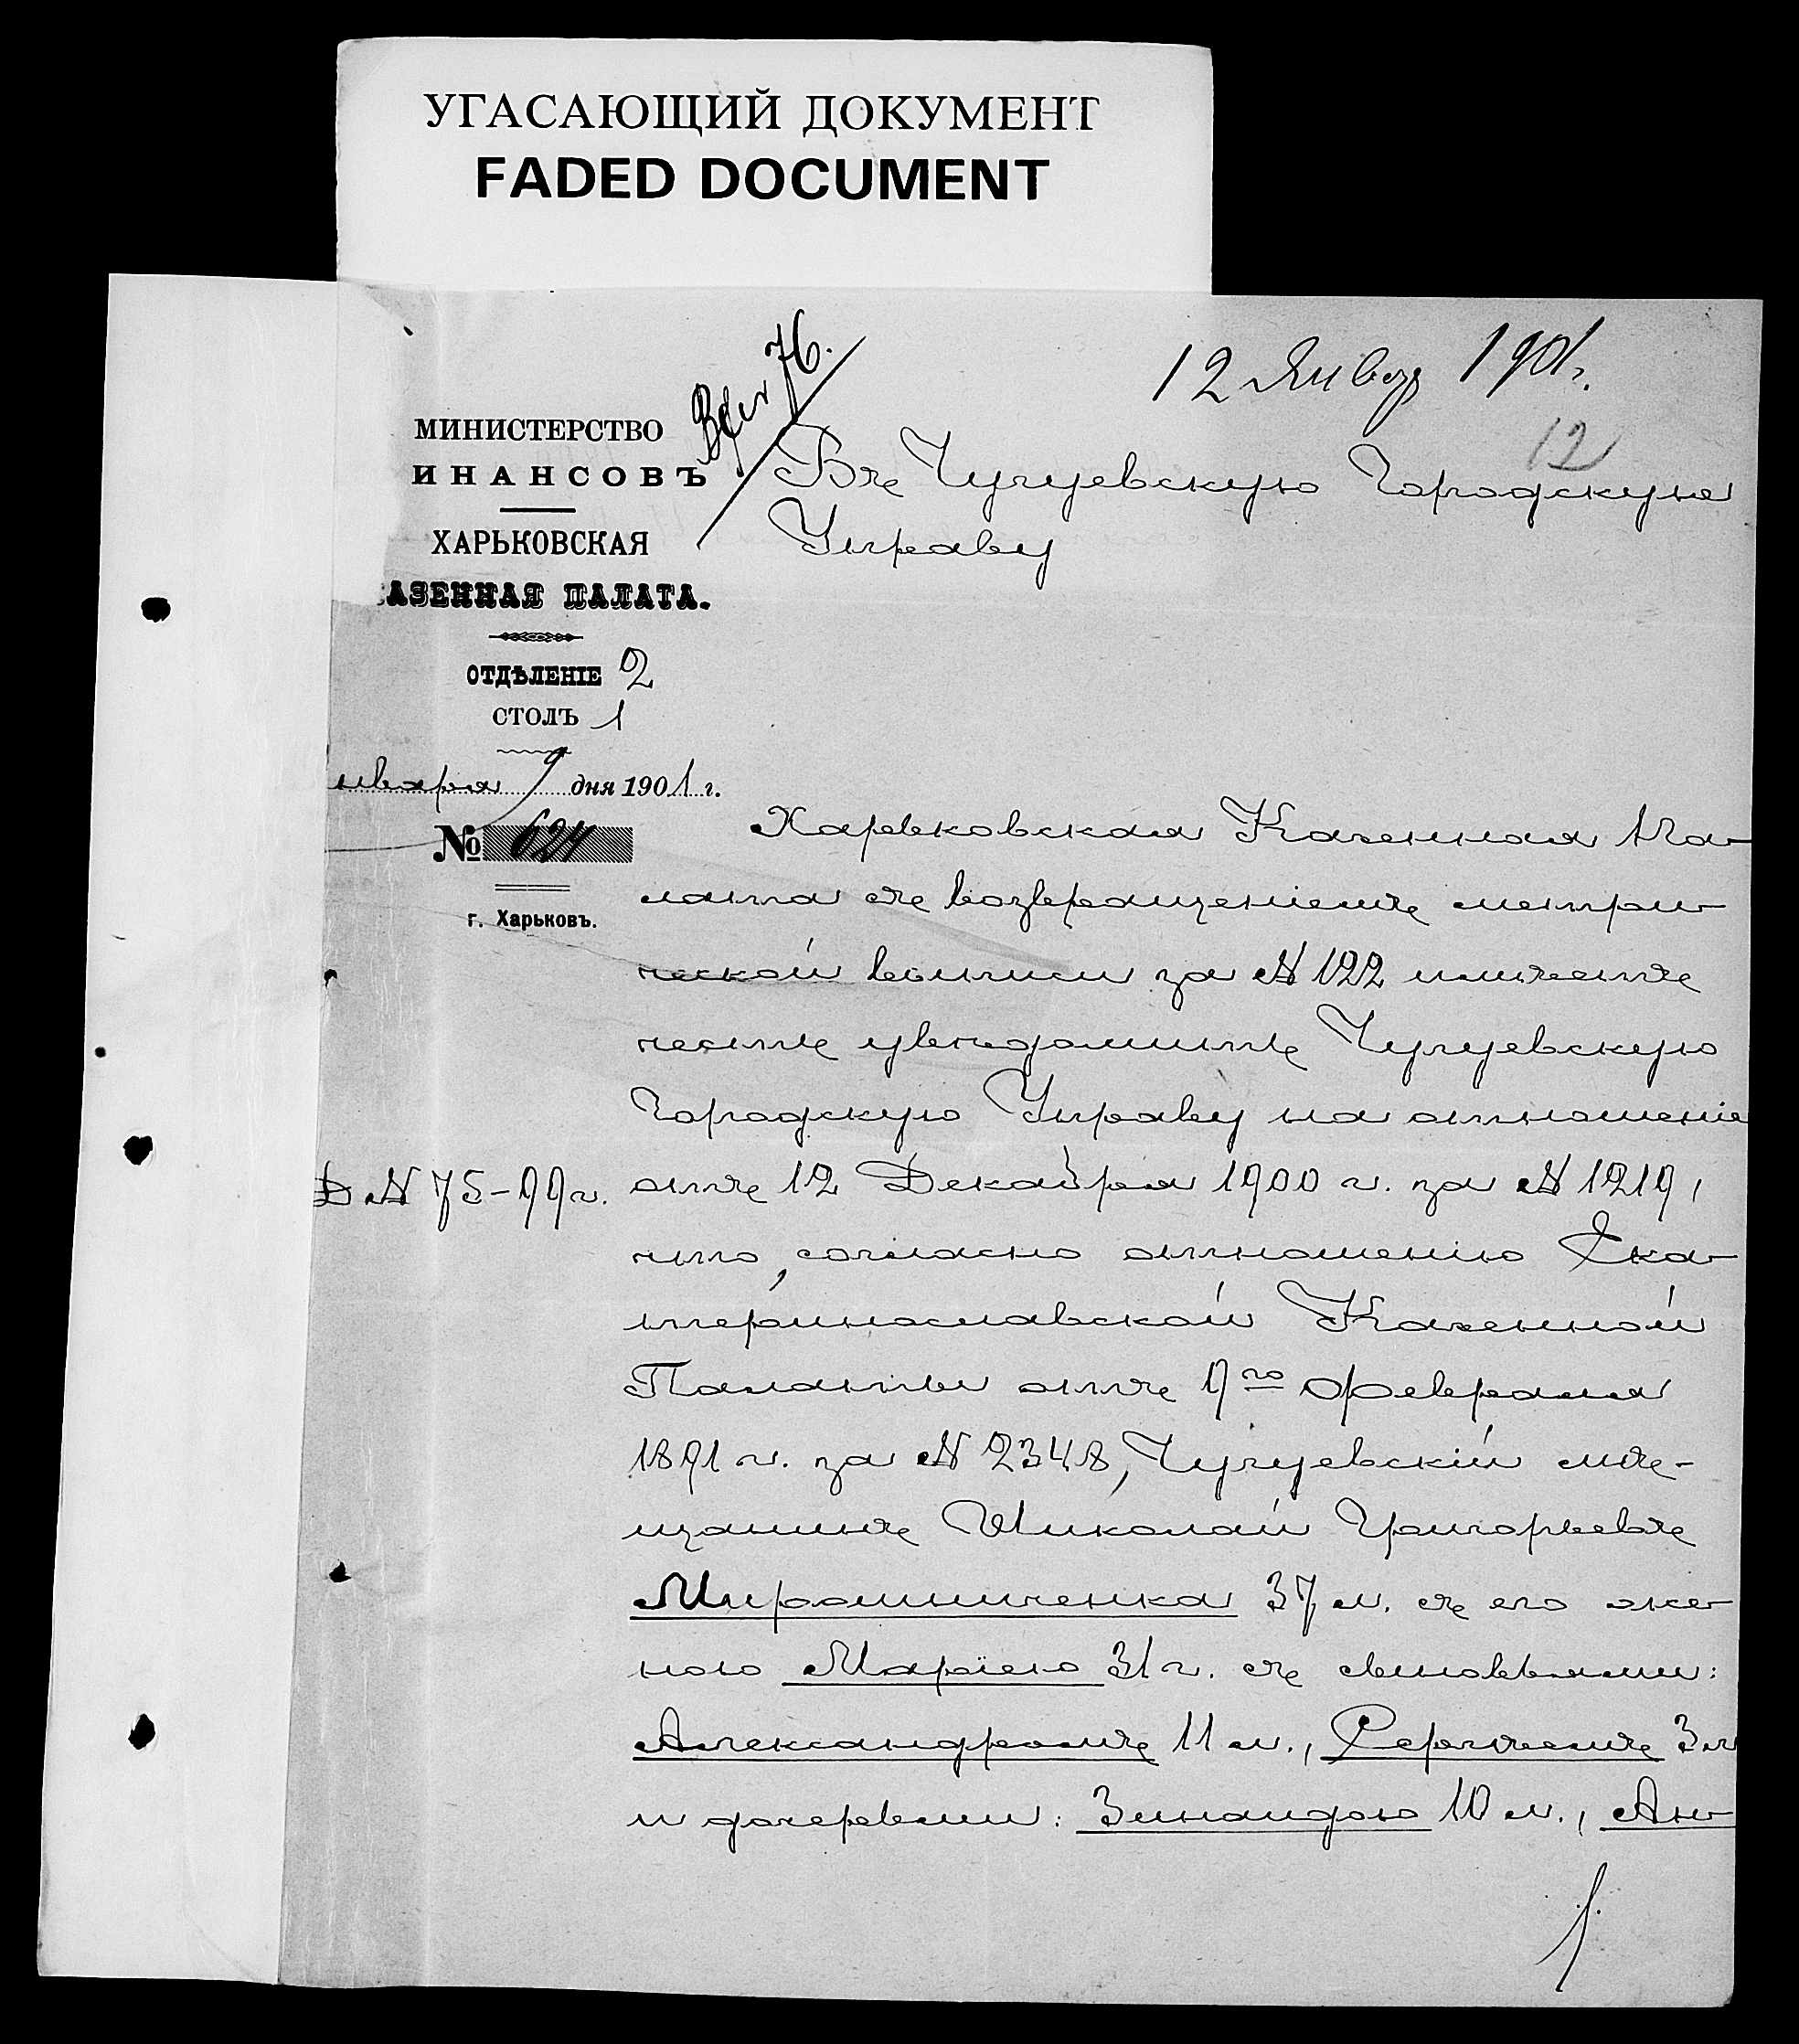 УГАСАЮЩИЙ ДОКУМЕНТ
FADED DOCUMENT
76.
12 Январ 1901 г.
12
МИНИСТЕРСТВО
ИНАНСОВЪ
ХАРЬКОВСКАЯ
АЗЕННАЯ ПАЛАТА.
ОТДѢЛЕНІЕ 2
СТОЛЪ 1
нваря 9 дня 1901 г.
№ 624
г. Харьковъ.
Въ Чугуевскую Городскую
Управу
Харьковская Казенная Па-
лата съ возвращеніемъ метри-
ческой выписи за № 122 имѣетъ
честь увѣдомить Чугуевскую
Городскую Управу на отношеніе
Д № 75-99 г.
отъ 12 Декабря 1900 г. за № 1219,
что, согласно отношенію Ека-
теринославской Казенной
Палаты отъ 9го февраля
1891 г. за № 2348, Чугуевскій мѣ-
щанинъ Николай Григорьевъ
Мирошниченко 37 л. съ его же-
ною Маріею 31 г. съ сыновьями:
Александромъ 11 л., Сергѣемъ 3 л
и дочерьми: Зинаидою 10 л., Ан-